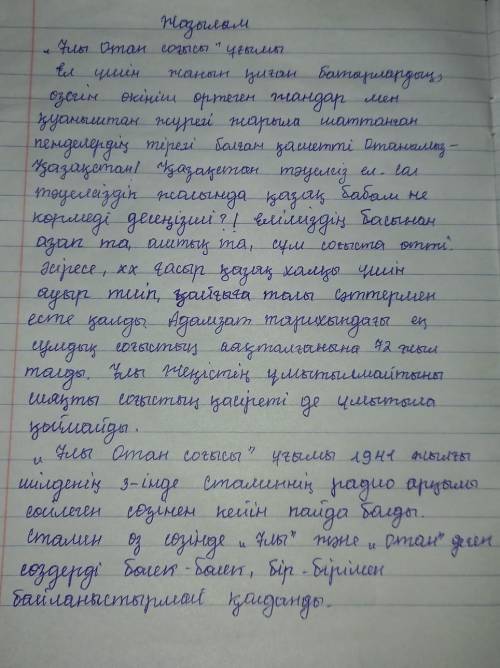 Жазылым
„Ұлы Отан соғысы" ұғымы
Ел үшін жанын қиған батырлардың,
өзегін өкініш өртеген жандар мен
қуаныштан жүрегі жарыла шаттанған
пенделердің тірегі болған қасиетті Отанымыз-
Қазақстан! Қазақстан тәуелсіз ел. Сол
тәуелсіздік жолында қазақ бабам не
көрмеді десеңізші?! Еліміздің басынан
азап та, аштық та, сұм соғыста өтті.
Әсіресе, ХХ ғасыр қазақ халқы үшін
ауыр тиіп, қайғыға толы сәттермен
есте қалды. Адамзат тарихындағы ең
сұмдық соғыстың аяқталғанына 72 жыл
толды. Ұлы Жеңістің ұмытылмайтыны
сияқты соғыстың қасіреті де ұмытыла
қоймайды.
„Ұлы Отан соғысы" ұғымы 1941 жылғы
шілденің 3-інде Сталиннің радио арқылы
сөйлеген сөзінен кейін пайда болды.
Сталин өз сөзінде „Ұлы" және „Отан" деген
сөздерді бөлек-бөлек, бір-бірімен
байланыстырмай қолданды.